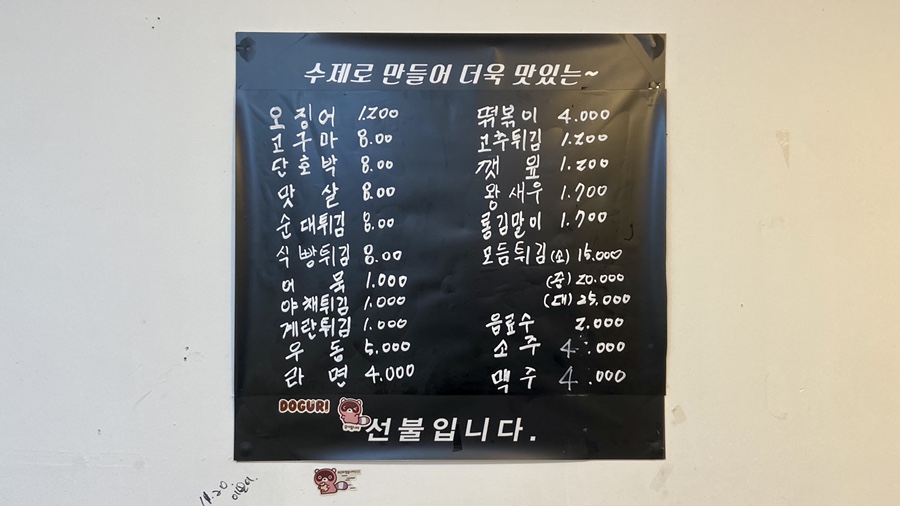 수제로 만들어 더욱 맛있는~
오징어 1.200
고구마 8.00
단호박 8.00
맛살 8.00
순대튀김 8.00
식빵튀김 8.00
어묵 1.000
야채튀김 1.000
계란튀김 1.000
우동 5.000
라면 4.000
떡볶이 4.000
고추튀김 1.200
깻잎 1.200
왕새우 1.700
롱김말이 1.700
모듬튀김(소) 15.000
(중) 20.000
(대) 25.000
음료수 2.000
소주 4.000
맥주 4.000
DOGURI
선불입니다.
11.20